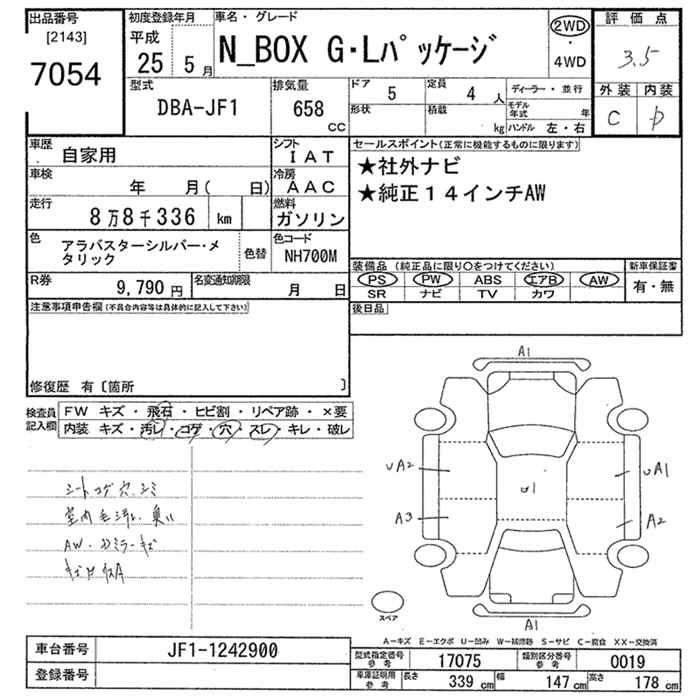 出品番号
[2143]
7054
初度登録年月
平成
25 5 月
車名・グレード
N_BOX G・Lパッケージ
2WD
・
4WD
評価点
3.5
外装 内装
C D
型式
DBA-JF1
排気量
658
CC
ドア 5
定員 4 人
形状
積載 kg
ディーラー・並行
モデル年式 年
ハンドル 左・右
車歴 自家用
シフト IAT
車検 年 月( 日)
冷房 AAC
走行 8万8千336 km
燃料 ガソリン
色 アラバスターシルバー・メタリック
色替
色コード NH700M
R券 9,790 円
名変通知期限 月 日
セールスポイント(正常に機能するものに限ります)
★社外ナビ
★純正14インチAW
装備品 (純正品に限り○をつけてください)
PS PW ABS エアB AW
SR ナビ TV カワ
新車保証書
有・無
後日品
注意事項申告欄(不具合内容等は具体的に記入して下さい)
修復歴 有〔箇所 〕
検査員記入欄
FW キズ・飛石・ヒビ割・リペア跡・×要
内装 キズ・汚レ・コゲ・穴・スレ・キレ・破レ
シートコゲ穴、シミ
室内毛汚れ、臭い
AW・ドミラーキズ
A1
UA2
UA1
U1
A3
A2
A1
スペア
A−キズ E−エクボ U−凹み W−補修跡 S−サビ C−腐食 XX−交換済
車台番号 JF1-1242900
登録番号
型式指定番号 参考 17075
類別区分番号 参考 0019
車庫証明用 参考
長さ 339 cm
幅 147 cm
高さ 178 cm